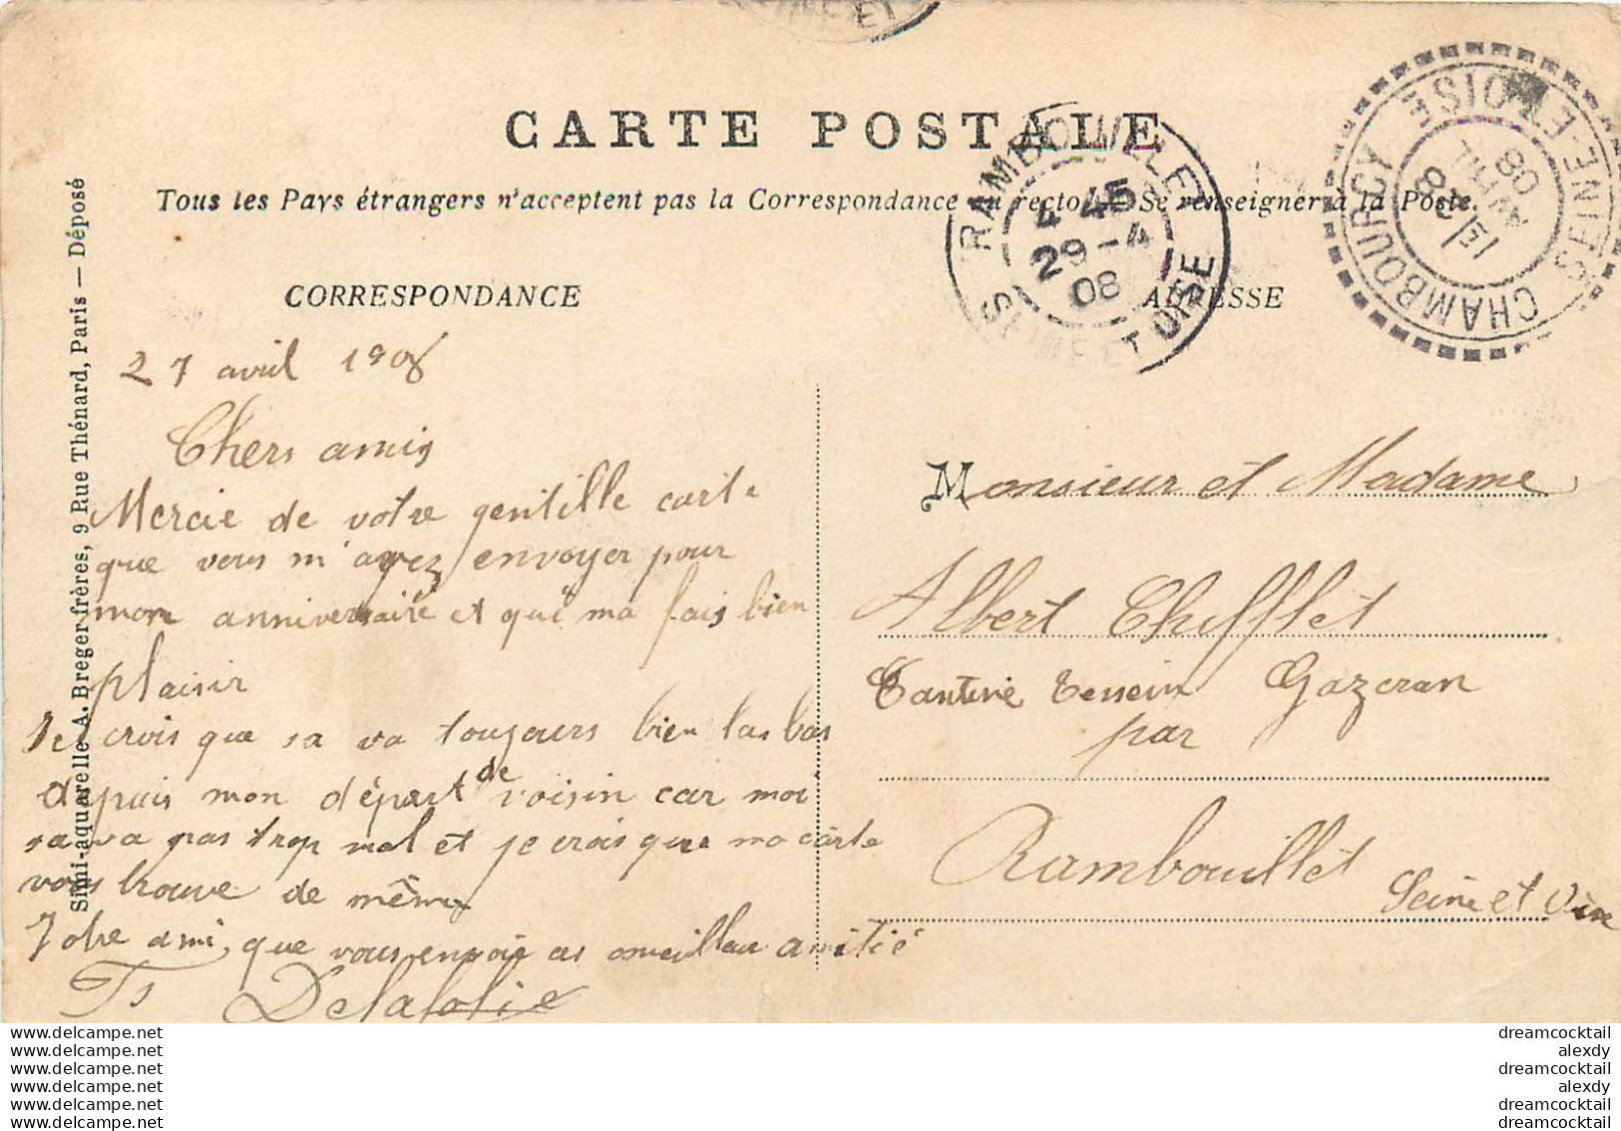 CARTE POSTALE
Tous les Pays étrangers n'acceptent pas la Correspondance au recto. Se renseigner à la Poste.
CORRESPONDANCE
ADRESSE
RAMBOUILLET
4 45
29-4
08
SEINE ET OISE
CHAMBOURCY
SEINE-ET-OISE
1E
28
AVRIL
08
Simi-aquarelle A. Breger frères, 9 Rue Thénard, Paris — Déposé
27 avril 1908
Chers amis
Mercie de votre gentille carte
que vous m'avez envoyer pour
mon anniversaire et qui ma fais bien
plaisir
Je crois que sa va toujours bien las bas
depuis mon départ de voisin car moi
sa va pas trop mal et je crois que ma carte
vous trouve de même
Votre ami, que vous envoie ces meilleur amitié
Ts Delafolie
Monsieur et Madame
Albert Chifflet
Cantine Gazeran
par
Rambouillet
Seine et Oise
www.delcampe.net
www.delcampe.net
www.delcampe.net
www.delcampe.net
www.delcampe.net
www.delcampe.net
dreamcocktail
alexdy
dreamcocktail
alexdy
dreamcocktail
dreamcocktail